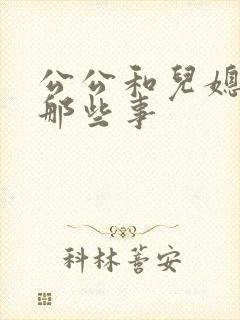 公公和兒媳
那些事
科林蓍安